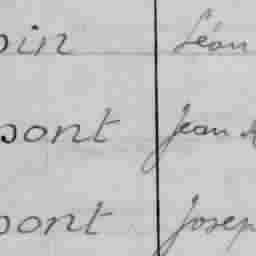 pin Léon
pont Jean
pont Josep